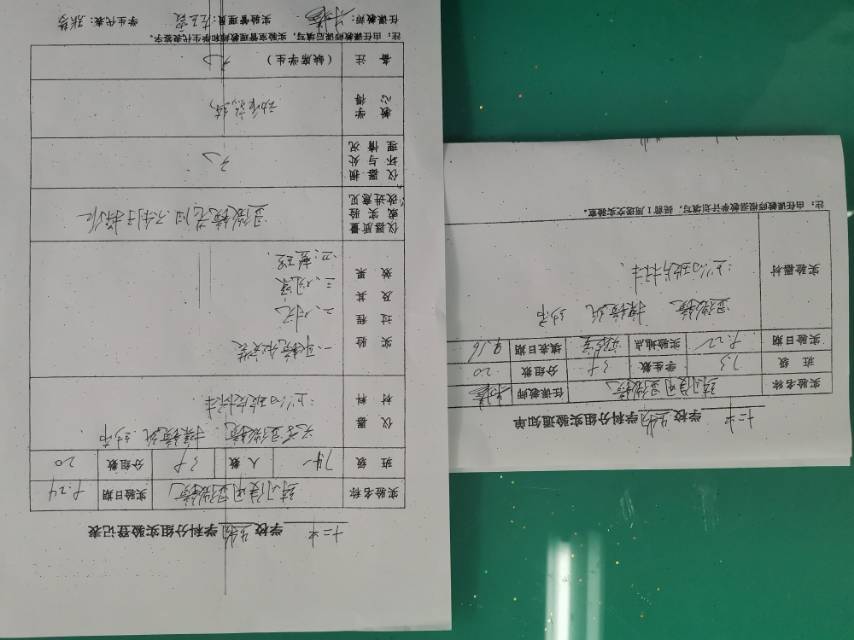 十二中 学校 生物 学科分组实验登记表
实验名称 练习使用显微镜 实验日期 9.24
班级 7.4 人数 38 分组数 20
仪器材料 光学显微镜 擦镜纸 纱布
上物玻片标本
实验过程及其效果 一、取镜和安放
二、对光
三、观察
四、整理
仪器质量或实验改进意见 显微镜老旧 不利于操作
仪器损坏与处理情况 无
教学心得
备注 (缺席学生) 无
注:由任课教师课后填写,实验室管理教师和学生代表签字。
任课教师: 实验管理员: 学生代表:
十二中 学校 生物 学科分组实验通知单
实验名称 练习使用显微镜 任课教师
班级 7.3 学生数 38 分组数 20
实验日期 9.22 实验地点 实验室 填表日期 9.16
实验器材 显微镜 擦镜纸 纱布
上物玻片标本
注:由任课教师根据教学计划填写,提前1周送交实验室。